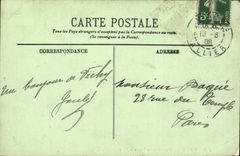 CARTE POSTALE
Tous les Pays étrangers n'acceptent pas la Correspondance au recto
(Se renseigner à la Poste)
CORRESPONDANCE
ADRESSE
Un bonjour de Vichy
Monsieur Paquié
28 rue du Temple
Paris
ALLIER